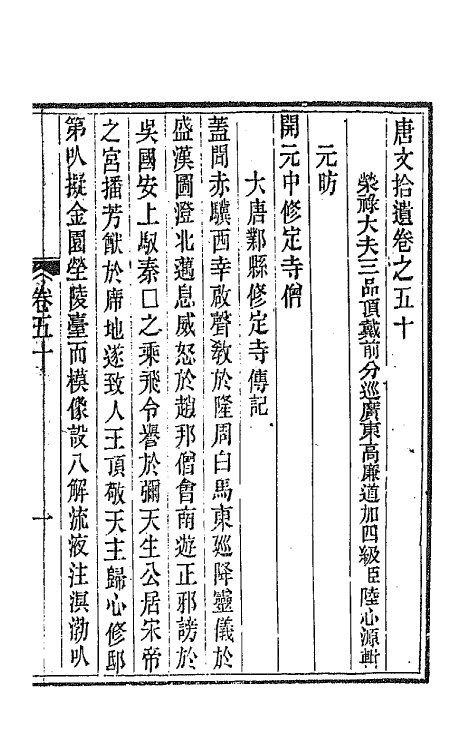 唐文拾遺卷之五十
榮祿大夫三品頂戴前分巡廣東高廉道加四級臣陸心源輯
元昉
開元中修定寺僧
大唐鄴縣修定寺傳記
蓋聞赤驥西幸啟聲敎於隆周白馬東廵降靈儀於
盛漢圖澄北邁息威怒於趙邦僧會南遊正邪謗於
吳國安上馭秦囗之乘飛令譽於彌天生公居宋帝
之宮播芳猷於席地遂致人王頂敬天主歸心修邸
第以擬金園塋陵臺而模像設八解流液注溟渤以
卷五十
一